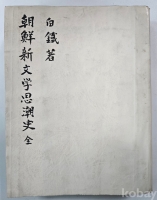 白鐵著
朝鮮新文学思潮史 全
kobay